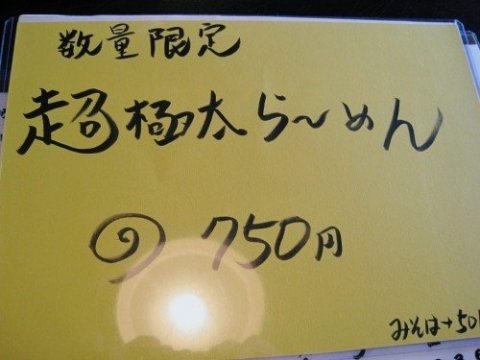 数量限定
超極太ら～めん
750円
みそは+50